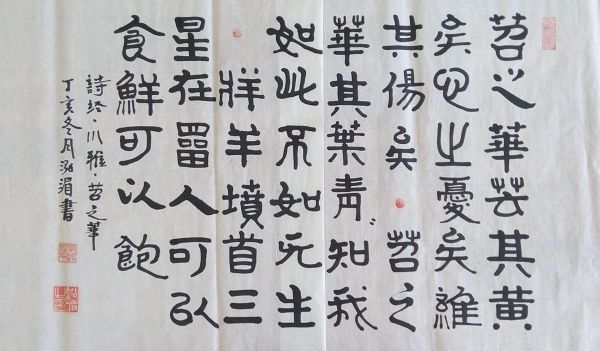 苕之華芸其黃
矣心之憂矣維
其傷矣 苕之
華其葉青〻知我
如此不如无生
牂羊墳首三
星在罶人可以
食鮮可以飽
詩经·小雅·苕之華
丁亥冬月 書